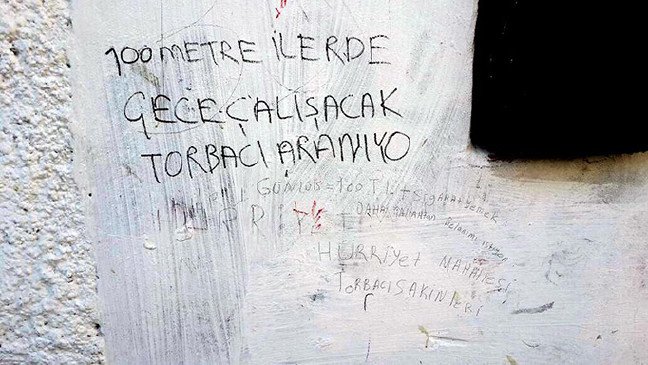 100 METRE İLERDE
GECE ÇALIŞACAK
TORBACI ARANIYO
1 GÜNLÜĞÜ = 100 TL + Sigara + yemek
HÜRRİYET MAHALLESİ
TORBACI SAKİNLERİ